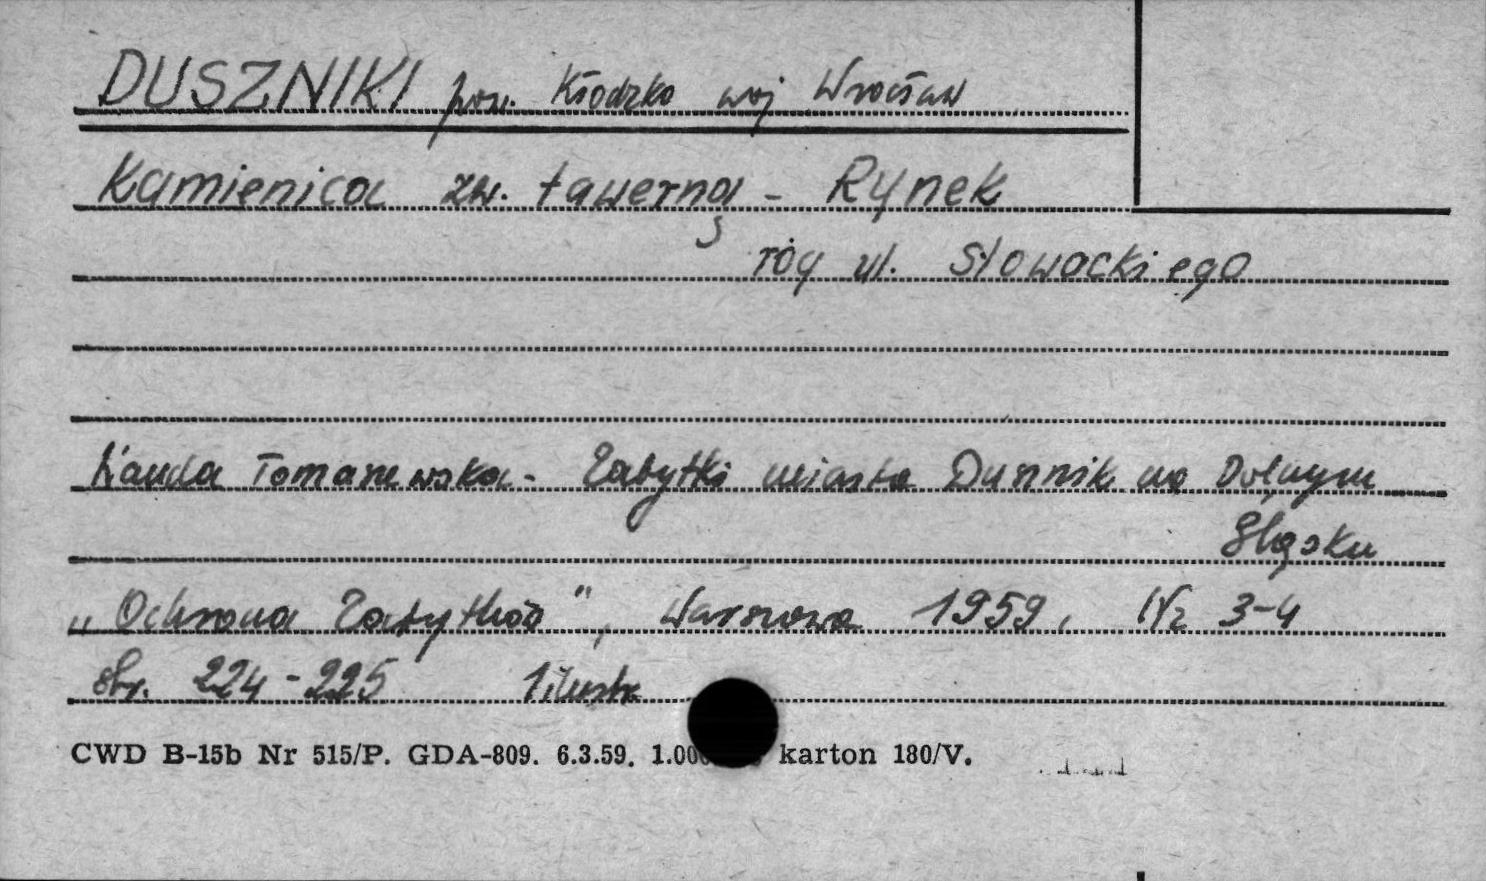 DUSZNIKI pow. Kłodzko woj Wrocław
Kamienica zw. tawerną - Rynek
róg ul. Słowackiego
Wanda Tomaszewska - Zabytki miasta Dusznik na Dolnym
Śląsku
„Ochrona Zabytków", Warszawa 1959, Nr 3-4
str. 224-225 1 ilustr
CWD B-15b Nr 515/P. GDA-809. 6.3.59. karton 180/V.